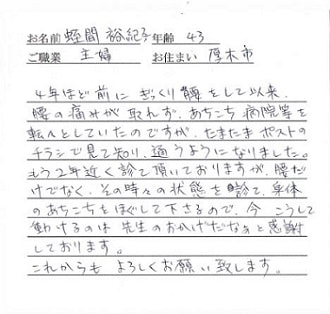 お名前 蛭間 裕紀子 年齢 43
ご職業 主婦 お住まい 厚木市
4年ほど前にぎっくり腰をして以来、
腰の痛みが取れず、あちこち病院等を
転々としていたのですが、たまたまポストの
チラシで見て知り、通うようになりました。
もう2年近く診て頂いておりますが、腰だ
けでなく、その時々の状態を診て、身体
のあちこちをほぐして下さるので、今こうして
動けるのは先生のおかげだなぁと感謝
しております。
これからもよろしくお願い致します。